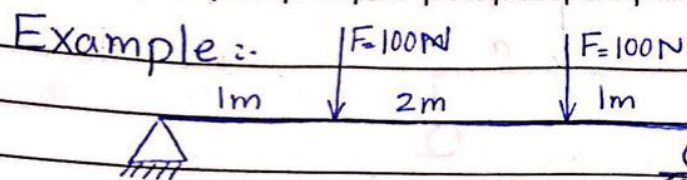 Example :-
F=100N
F=100N
1m
2m
1m